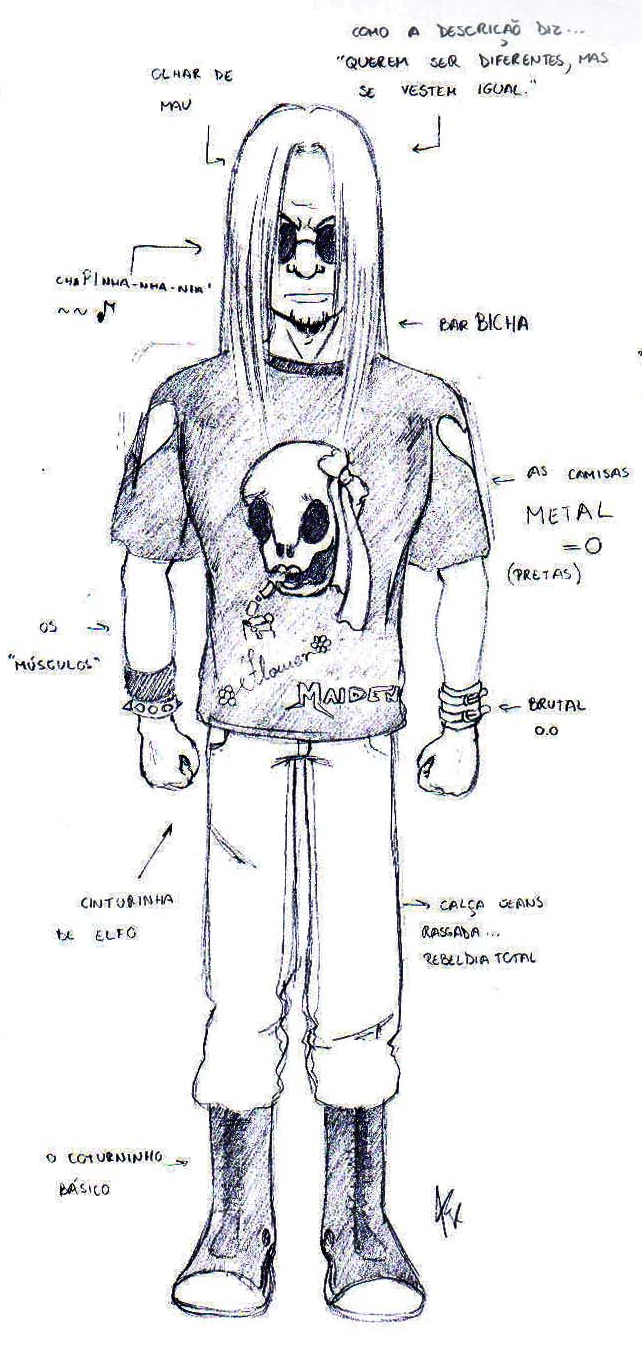 COMO A DESCRIÇÃO DIZ...
"QUEREM SER DIFERENTES, MAS
SE VESTEM IGUAL."
OLHAR DE
MAU
CHAPINHA-NHA-NHA
~~
BARBICHA
AS CAMISAS
METAL
=O
(PRETAS)
OS
"MÚSCULOS"
Flower
MAIDEN
BRUTAL
O.O
CINTURINHA
DE ELFO
CALÇA JEANS
RASGADA...
REBELDIA TOTAL
O COTURNINHO
BÁSICO